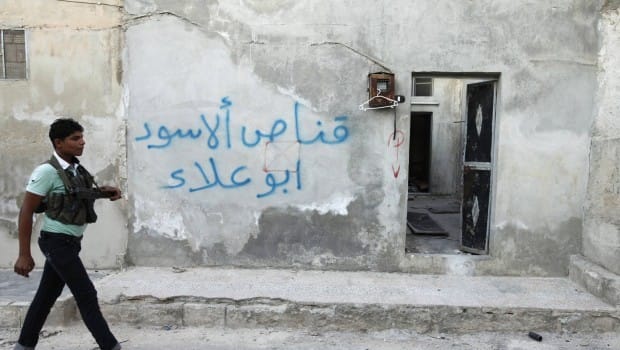 قناص ألاسود
ابو علاء